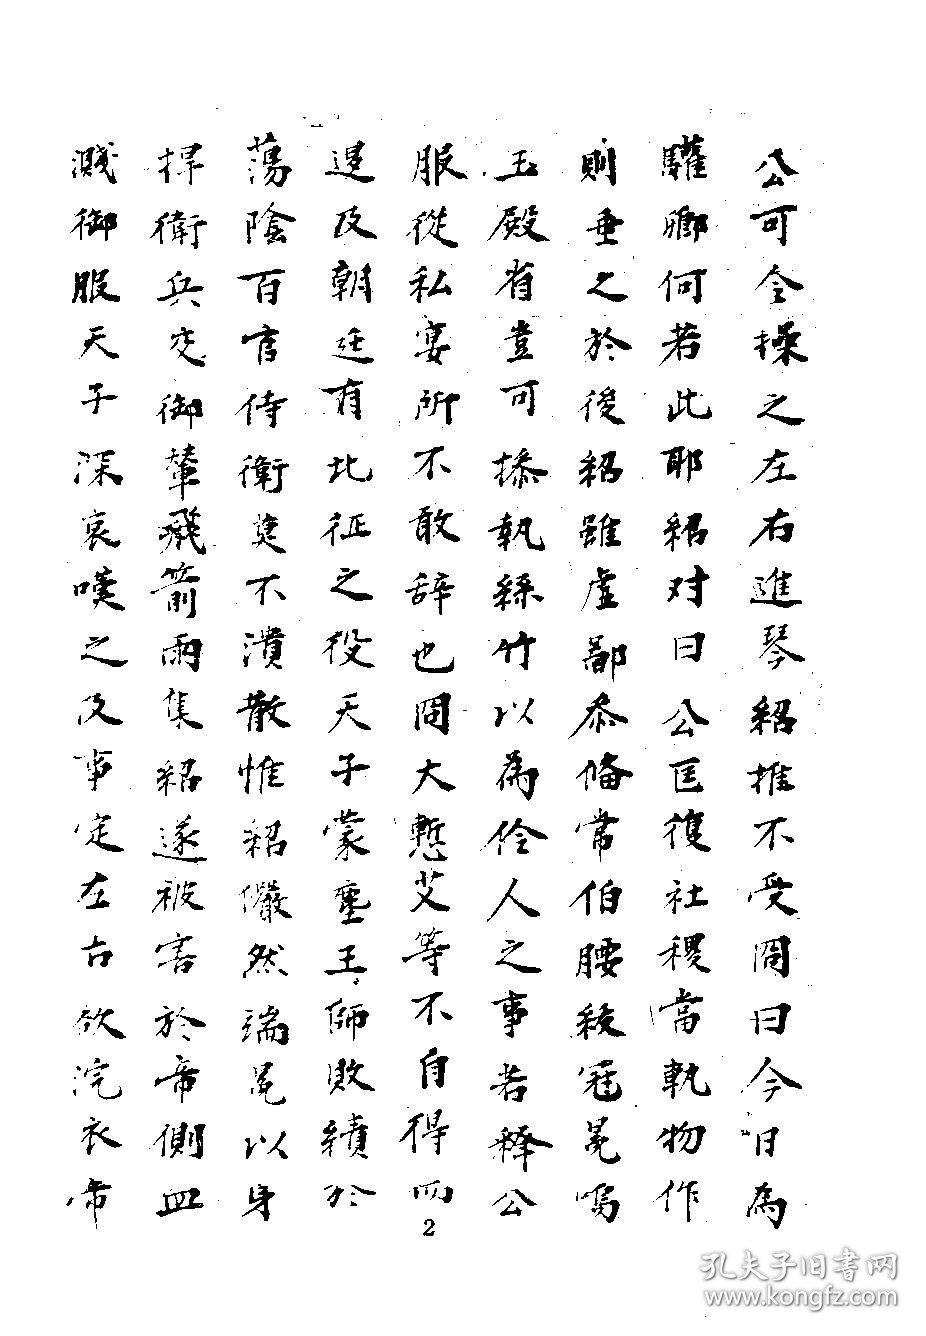 公可令操之左右進琴紹推不受冏曰今日為
驩卿何若此耶紹对曰公匡復社稷當軌物作
則垂之於後紹雖虛鄙忝備常伯腰紱冠冕鳴
玉殿省豈可操執絲竹以為伶人之事若釋公
服從私宴所不敢辞也冏大慙艾等不自得而
退及朝廷有北征之役天子蒙塵王師敗績於
蕩陰百官侍衛莫不潰散惟紹儼然端冕以身
捍衛兵交御輦飛箭雨集紹遂被害於帝側血
濺御服天子深哀嘆之及事定左右欲浣衣帝
2
孔夫子旧書网
www.kongfz.com